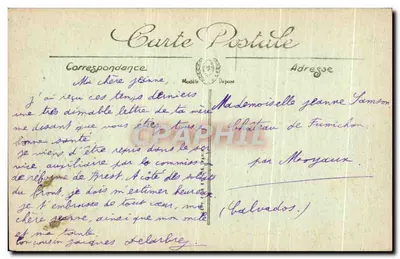 Carte Postale
Correspondance
Adresse
Modèle Déposé
Ma chère Jeanne,
J'ai reçu ces temps derniers
une très aimable lettre de ta mère
me disant que vous êtes tous
bonne santé.
Je viens d'être repris dans le ser
vice auxiliaire par la commission
de réforme de Brest. A côté des soldats
du front, je dois m'estimer heureux.
Je t'embrasse de tout cœur, ma
chère Jeanne, ainsi que mon oncle
et ma tante.
Ton cousin Jacques Delarbre
Mademoiselle Jeanne Samson
Château de Fumichon
par Moyaux
(Calvados)